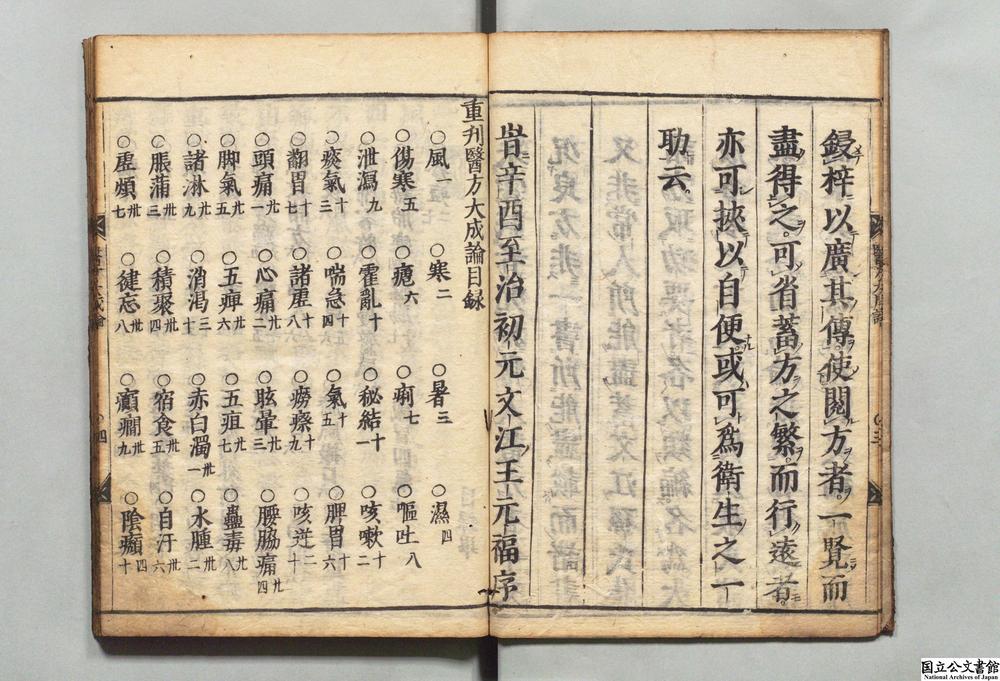 鋟梓以廣其傳使閱方者一覽而
盡得之可省蓄方之繁而行遠者
亦可挾以自便或可爲衛生之一
助云
昔辛酉至治初元文江王元福序
重刋醫方大成論目録
○風一 ○寒二 ○暑三 ○濕四
○傷寒五 ○瘧六 ○痢七 ○嘔吐八
○泄瀉九 ○霍亂十 ○秘結十一 ○咳嗽十二
○痰氣十三 ○喘急十四 ○氣十五 ○脾胃十六
○翻胃十七 ○諸虛十八 ○癆瘵十九 ○咳逆二十
○頭痛卅一 ○心痛卅二 ○眩暈卅三 ○腰脇痛卅四
○脚氣卅五 ○五痺卅六 ○五疸卅七 ○蠱毒卅八
○諸淋卅九 ○消渇三十 ○赤白濁卅一 ○水腫卅二
○脹蒲卅三 ○積聚卅四 ○宿食卅五 ○自汗卅六
○虛煩卅七 ○健忘卅八 ○癲癇卅九 ○陰㿗四十
国立公文書館
National Archives of Japan